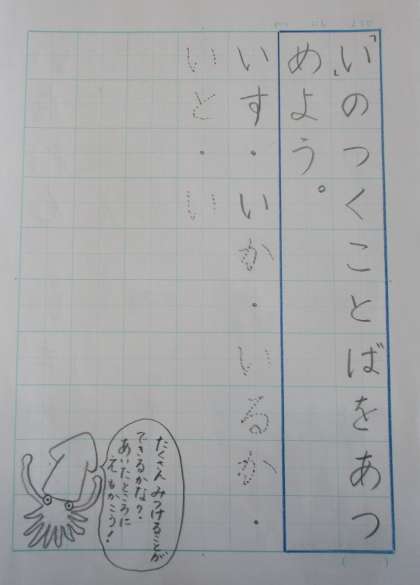 「い」のつくことばをあつ
めよう。
いす・いか・いるか・
いと・い
たくさん みつけることが
できるかな？
あいたところに
えもかこう！